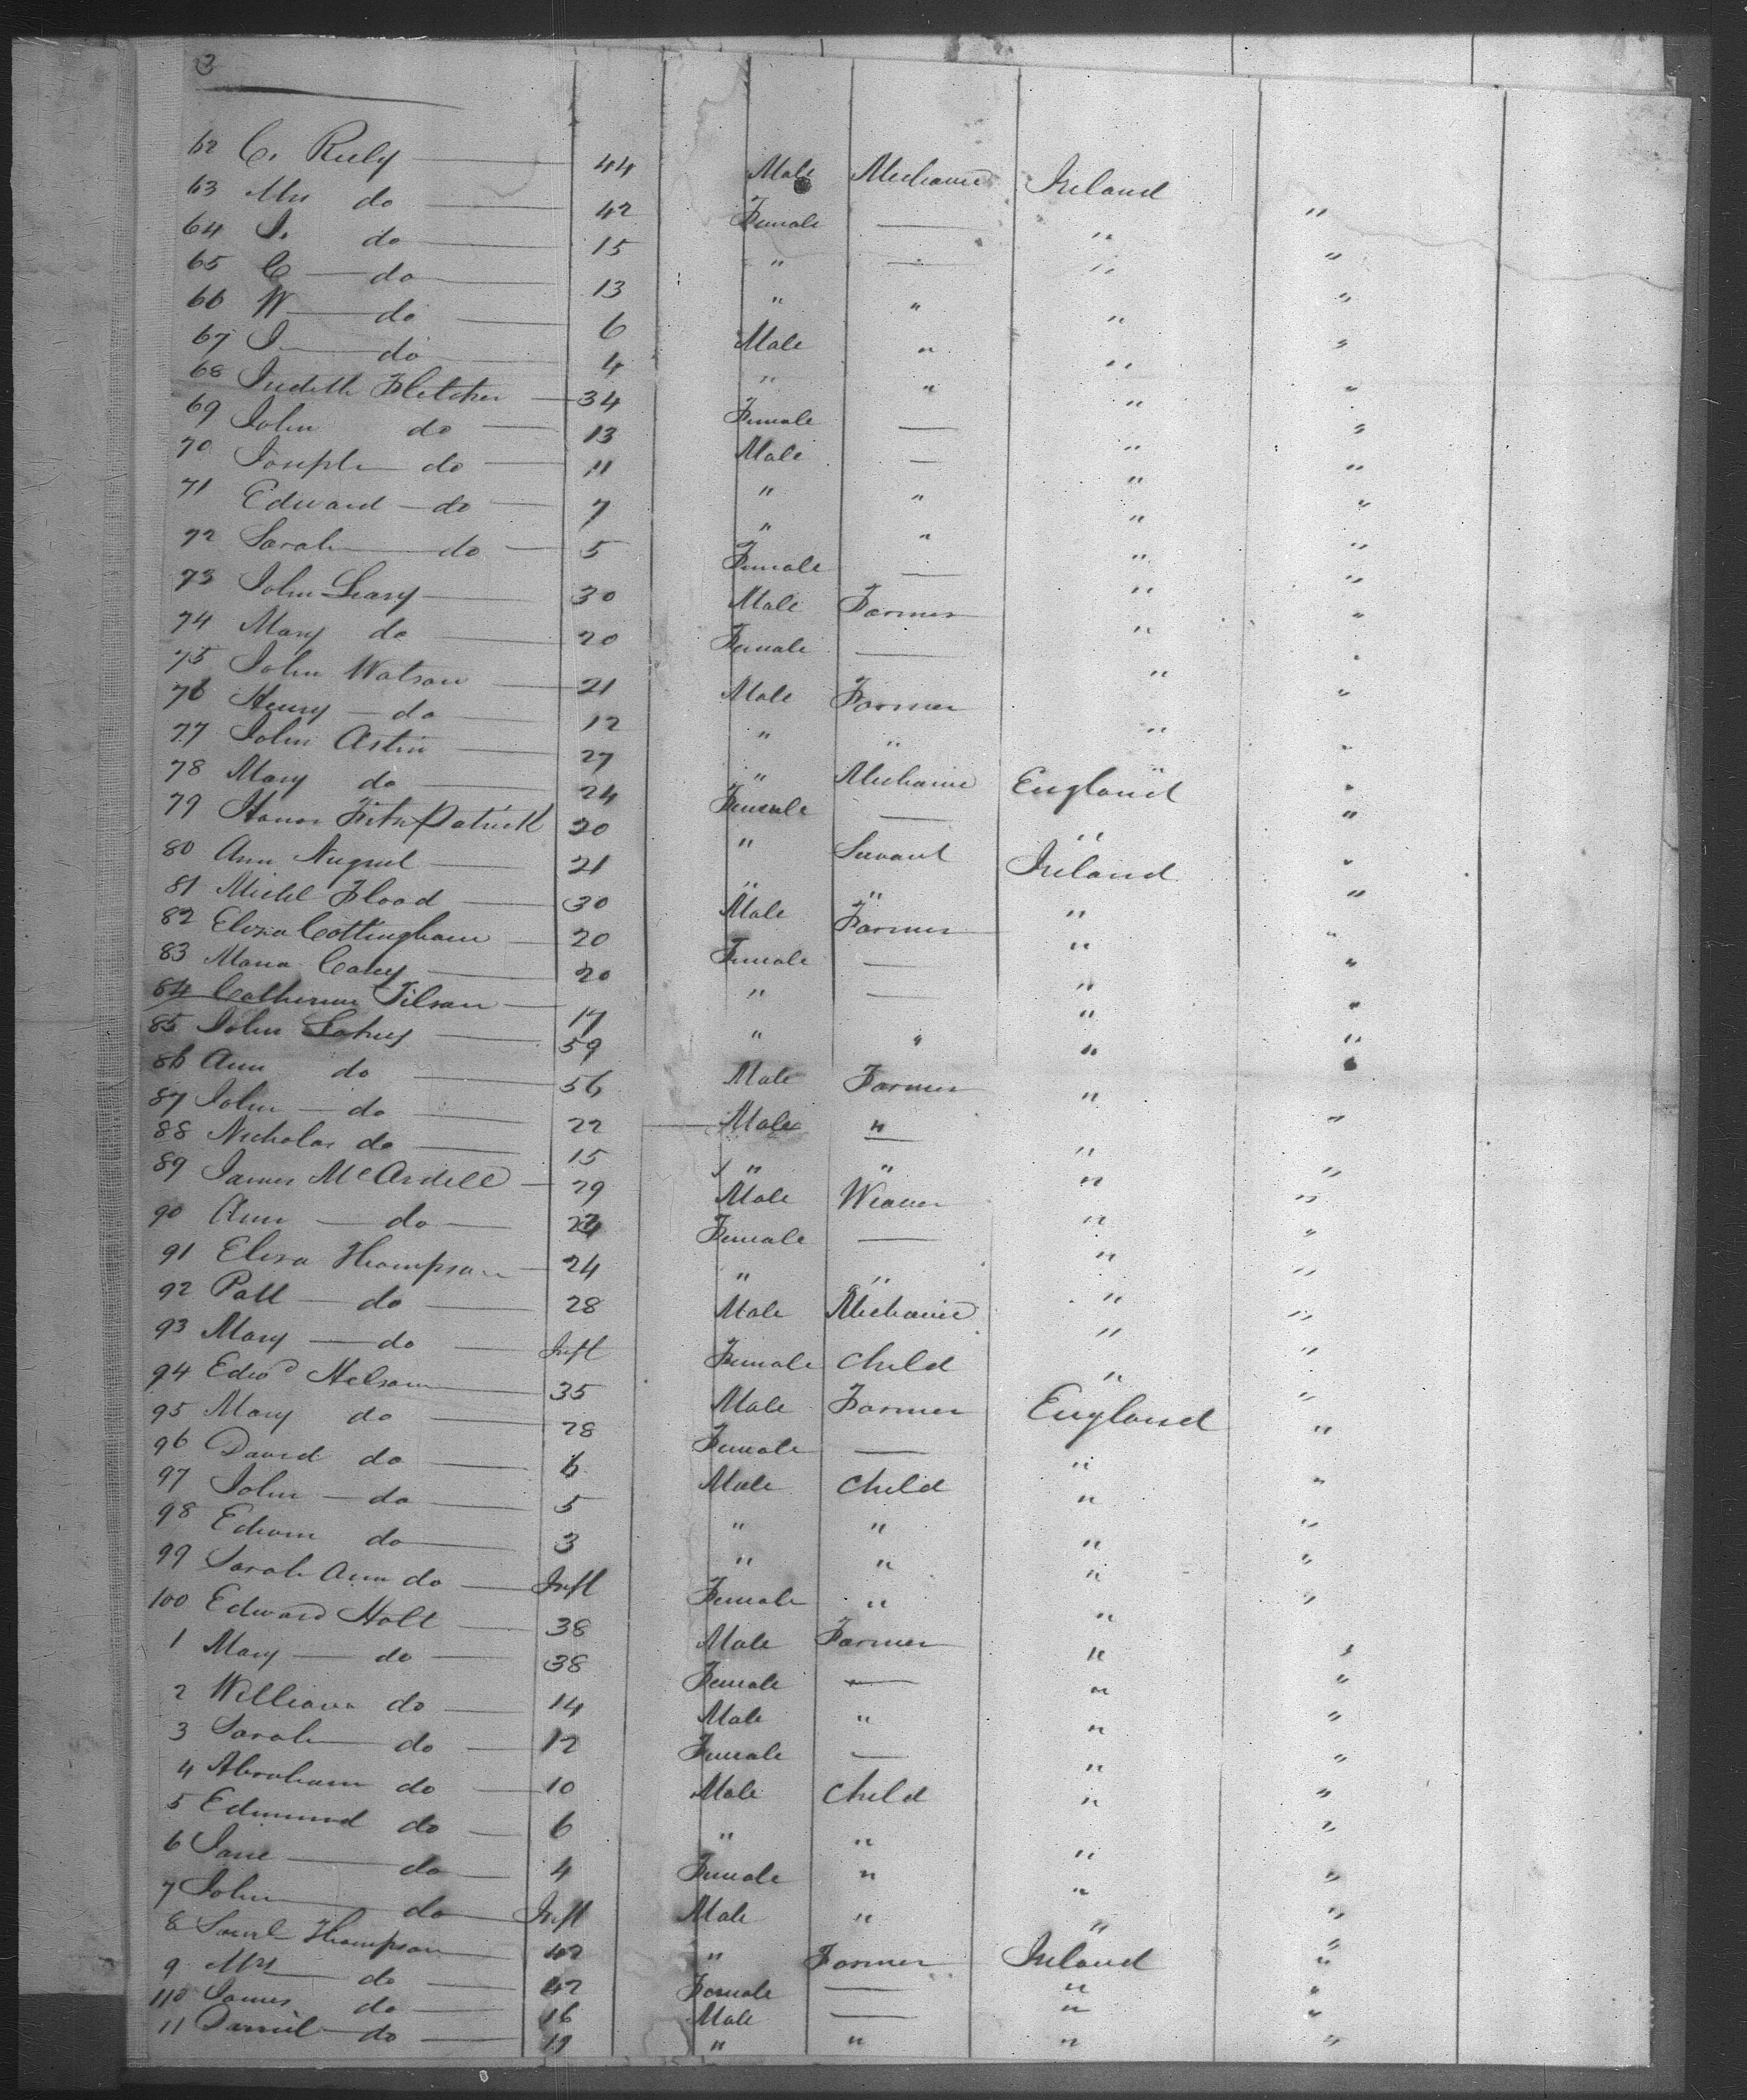 3
62 C. Riely 44 Male Mechanic Ireland
63 Mrs do 42 Female — " "
64 J. do 15 " — " "
65 C do 13 " " " "
66 W do 6 Male " " "
67 J do 4 " " " "
68 Judith Fletcher 34 Female — " "
69 John do 13 Male — " "
70 Joseph do 11 " " " "
71 Edward do 7 " " " "
72 Sarah do 5 Female — " "
73 John Leary 30 Male Farmer " "
74 Mary do 20 Female — " "
75 John Watson 21 Male Farmer " "
76 Henry do 12 " " " "
77 John Astin 27 " Mechanic England "
78 Mary do 24 Female — " "
79 Honor FitzPatrick 20 " Servant Ireland "
80 Ann Nugent 21 " " " "
81 Michl Flood 30 Male Farmer " "
82 Eliza Cottingham 20 Female — " "
83 Maria Carey 20 " — " "
84 Catherine Tilson 17 " " " "
85 John 59 Male Farmer " "
86 Ann do 56 — "
87 John do 22 Male " " "
88 Nicholas do 15 " " " "
89 James McArdell 29 Male Weaver " "
90 Ann do Female — " "
91 Eliza Thompson 24 " " " "
92 Patt do 28 Male Mechanic " "
93 Mary do Inft Female Child " "
94 Edwd Nelson 35 Male Farmer England "
95 Mary do 28 Female — " "
96 David do 6 Male Child " "
97 John do 5 " " " "
98 Edwin do 3 " " " "
99 Sarah Ann do Inft Female " " "
100 Edward Holt 38 Male Farmer " "
1 Mary do 38 Female — " "
2 William do 14 Male " " "
3 Sarah do 12 Female — " "
4 Abraham do 10 Male Child " "
5 Edmund do 6 " " " "
6 Jane do 4 Female " " "
7 John do Inft Male " " "
8 Saml Thompson 42 " Farmer Ireland "
9 Mrs do 42 Female — " "
110 James do 16 Male — " "
11 Daniel do " " " "